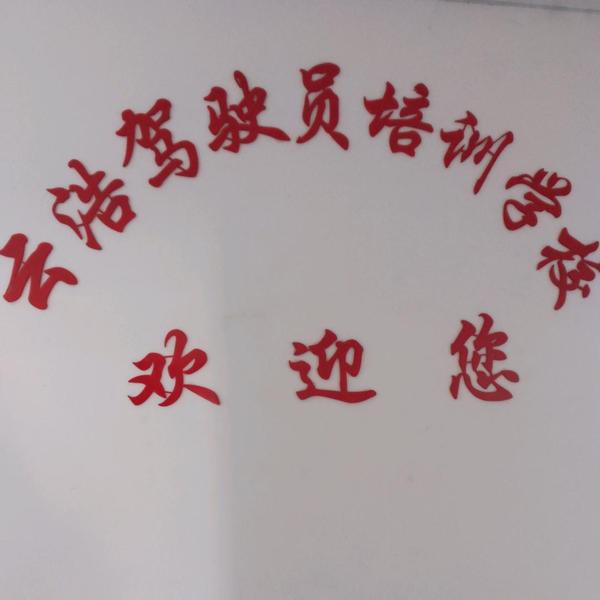 云浩驾驶员培训学校
欢迎您